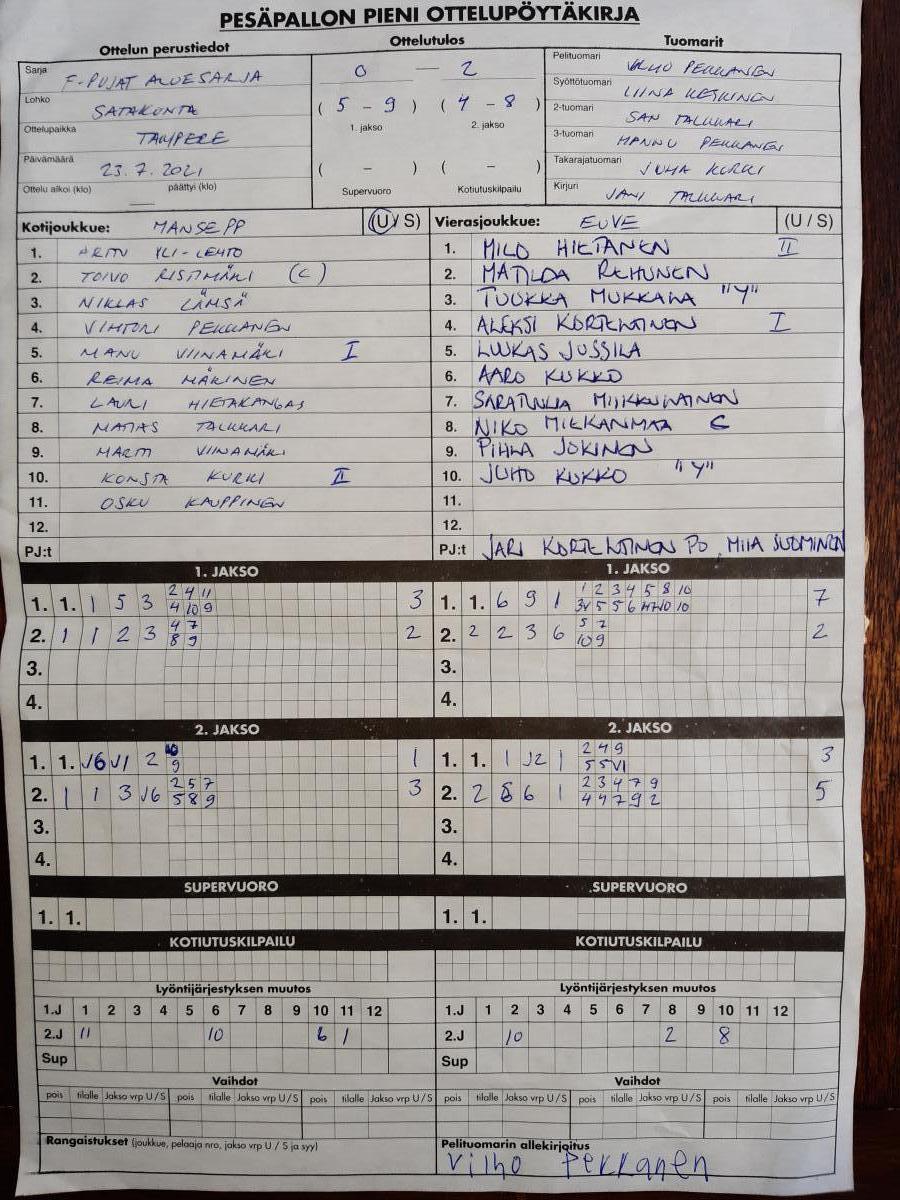 PESÄPALLON PIENI OTTELUPÖYTÄKIRJA
Ottelun perustiedot
Ottelutulos
Tuomarit
Sarja F-POJAT ALUESARJA
Lohko SATAKUNTA
Ottelupaikka TAMPERE
Päivämäärä 23.7.2021
Ottelu alkoi (klo) päättyi (klo)
0 — 2
( 5 - 9 ) ( 4 - 8 )
1. jakso 2. jakso
( - ) ( - )
Supervuoro Kotiutuskilpailu
Pelituomari VILHO PEKKANEN
Syöttötuomari LIINA KESKINEN
2-tuomari SAN TALKKARI
3-tuomari HANNU PEKKANEN
Takarajatuomari JUHA KURKI
Kirjuri JANI TALKKARI
Kotijoukkue: MANSE PP (U / S)
1. YLI-LEHTO
2. TOIVO RISTIMÄKI (C)
3. NIKLAS LÄMSÄ
4. VIHTORI PEKKANEN
5. MANU VIINAMÄKI I
6. REIMA MÄKINEN
7. LAURI HIETAKANGAS
8. MATIAS TALKKARI
9. MARTTI VIINAMÄKI
10. KONSTA KURKI II
11. OSKU KAUPPINEN
12.
PJ:t
Vierasjoukkue: EUVE (U / S)
1. MILO HIETANEN II
2. MATILDA REHUNEN
3. TUUKKA MUKKALA "Y"
4. ALEKSI KORTEHTINEN I
5. LUUKAS JUSSILA
6. AARO KUKKO
7. MIIKKULAINEN
8. NIKO MILKANMAA C
9. PIHLA JOKINEN
10. JUHO KUKKO "Y"
11.
12.
PJ:t JARI KORTEHTINEN PO, MIIA SUOMINEN
1. JAKSO
2 4 11
1. 1. 1 5 3 3
4 10 9
4 7
2. 1 1 2 3 2
8 9
3.
4.
1. JAKSO
1 2 3 4 5 8 10
1. 1. 6 9 1 7
5 7
2. 2 2 3 6 2
10 9
3.
4.
2. JAKSO
1. 1. √6 √1 2 1
9
2 5 7
2. 1 1 3 √6 3
5 8 9
3.
4.
2. JAKSO
2 4 9
1. 1. 1 √2 1 3
5 5 √1
2 3 4 7 9
2. 2 6 1 5
4 4 7 9 2
3.
4.
SUPERVUORO
1. 1.
SUPERVUORO
1. 1.
KOTIUTUSKILPAILU
KOTIUTUSKILPAILU
Lyöntijärjestyksen muutos
1.J 1 2 3 4 5 6 7 8 9 10 11 12
2.J 11 10 6 1
Sup
Lyöntijärjestyksen muutos
1.J 1 2 3 4 5 6 7 8 9 10 11 12
2.J 10 2 8
Sup
Vaihdot
pois tilalle Jakso vrp U / S pois tilalle Jakso vrp U / S pois tilalle Jakso vrp U / S
Vaihdot
pois tilalle Jakso vrp U / S pois tilalle Jakso vrp U / S pois tilalle Jakso vrp U / S
Rangaistukset (joukkue, pelaaja nro, jakso vrp U / S ja syy)
Pelituomarin allekirjoitus
Vilho Pekkanen